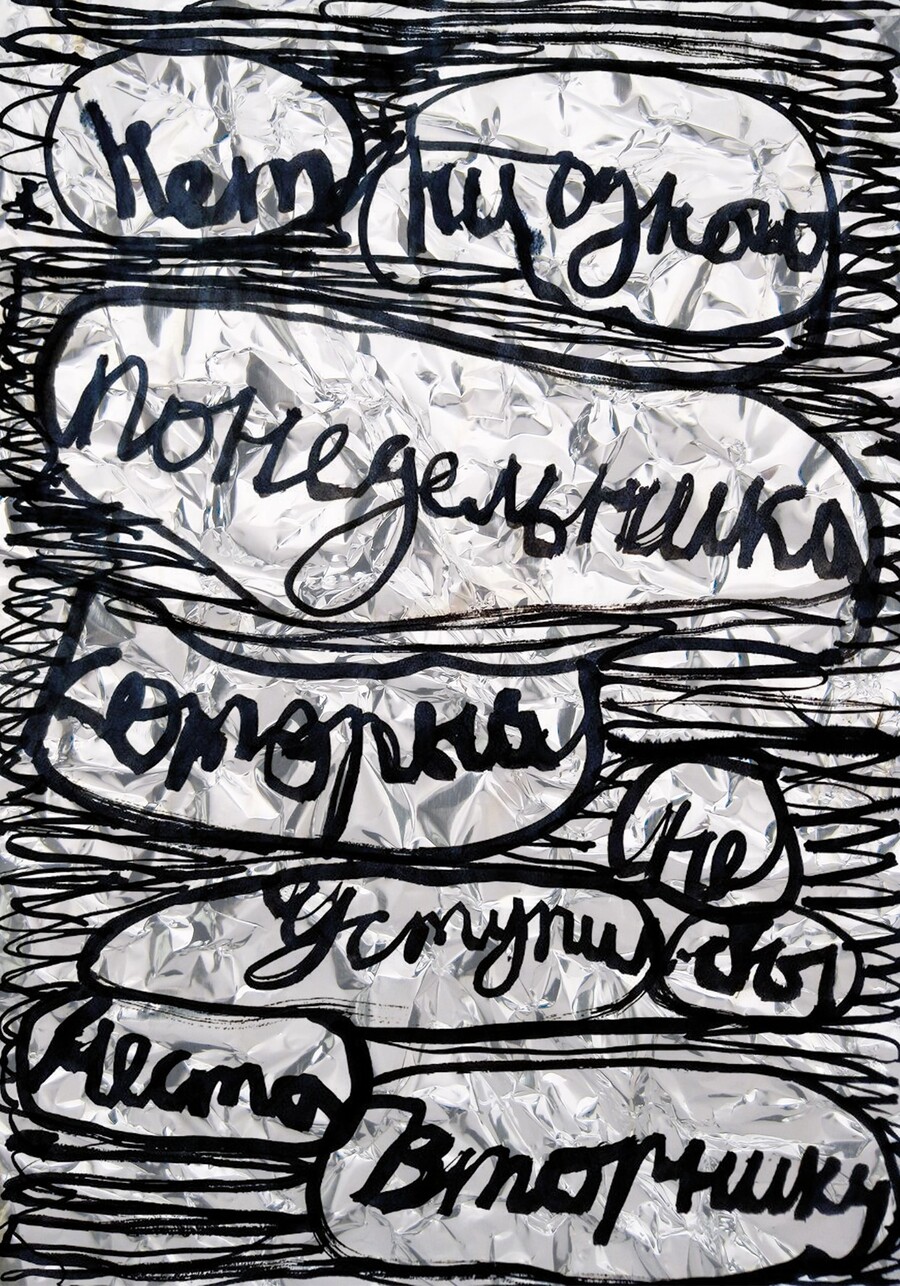 Нет ни одного
Понедельника
который
не
Уступил бы
места
Вторнику